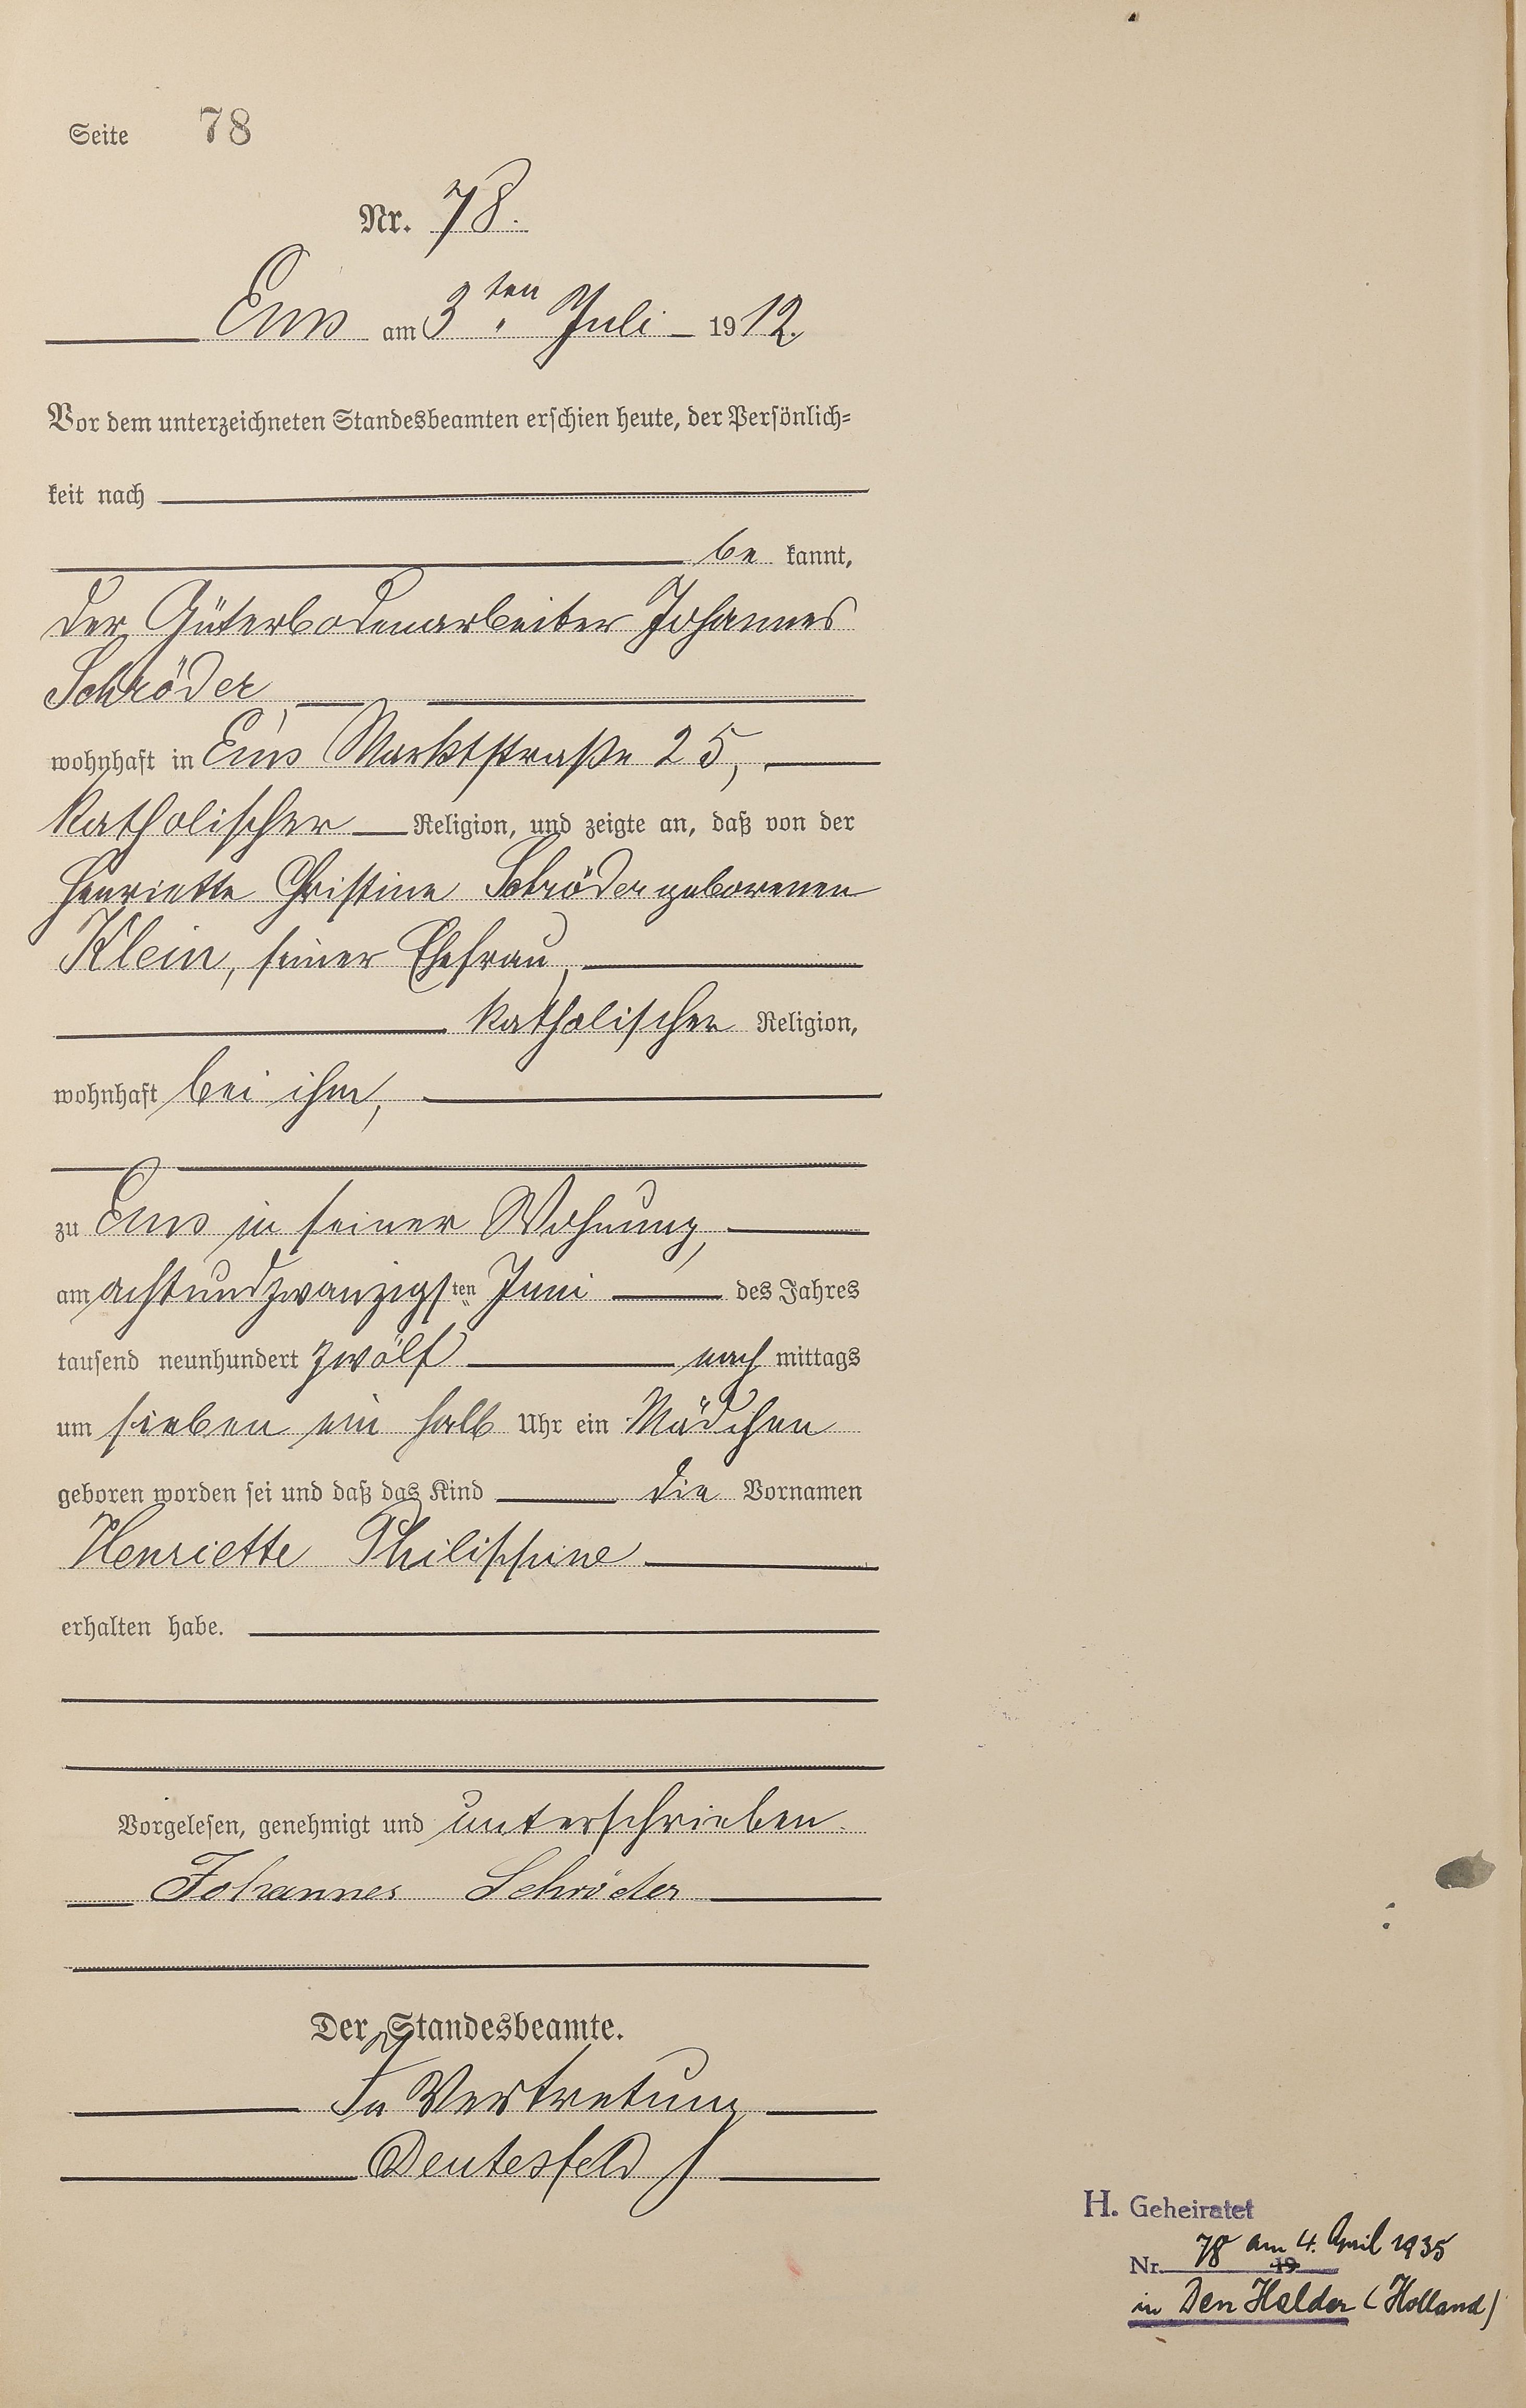 Seite 78
Nr. 78.
Ems am 3ten Juli 1912.
Vor dem unterzeichneten Standesbeamten erschien heute, der Persönlich=
keit nach
be kannt,
der Güterbodenarbeiter Johannes
Schröder
wohnhaft in Ems Marktstraße 25,
katholischer Religion, und zeigte an, daß von der
Henriette Christine Schröder geborenen
Klein, seiner Ehefrau,
katholischer Religion,
wohnhaft bei ihm,
zu Ems in seiner Wohnung,
am achtundzwanzigsten Juni des Jahres
tausend neunhundert zwölf nach mittags
um sieben ein halb Uhr ein Mädchen
geboren worden sei und daß das Kind die Vornamen
Henriette Philippine
erhalten habe.
Vorgelesen, genehmigt und unterschrieben.
Johannes Schröder
Der Standesbeamte.
In Vertretung
Deutesfeld
H. Geheiratet
Nr. 78 am 4. April 1935
19
in Den Helder (Holland)